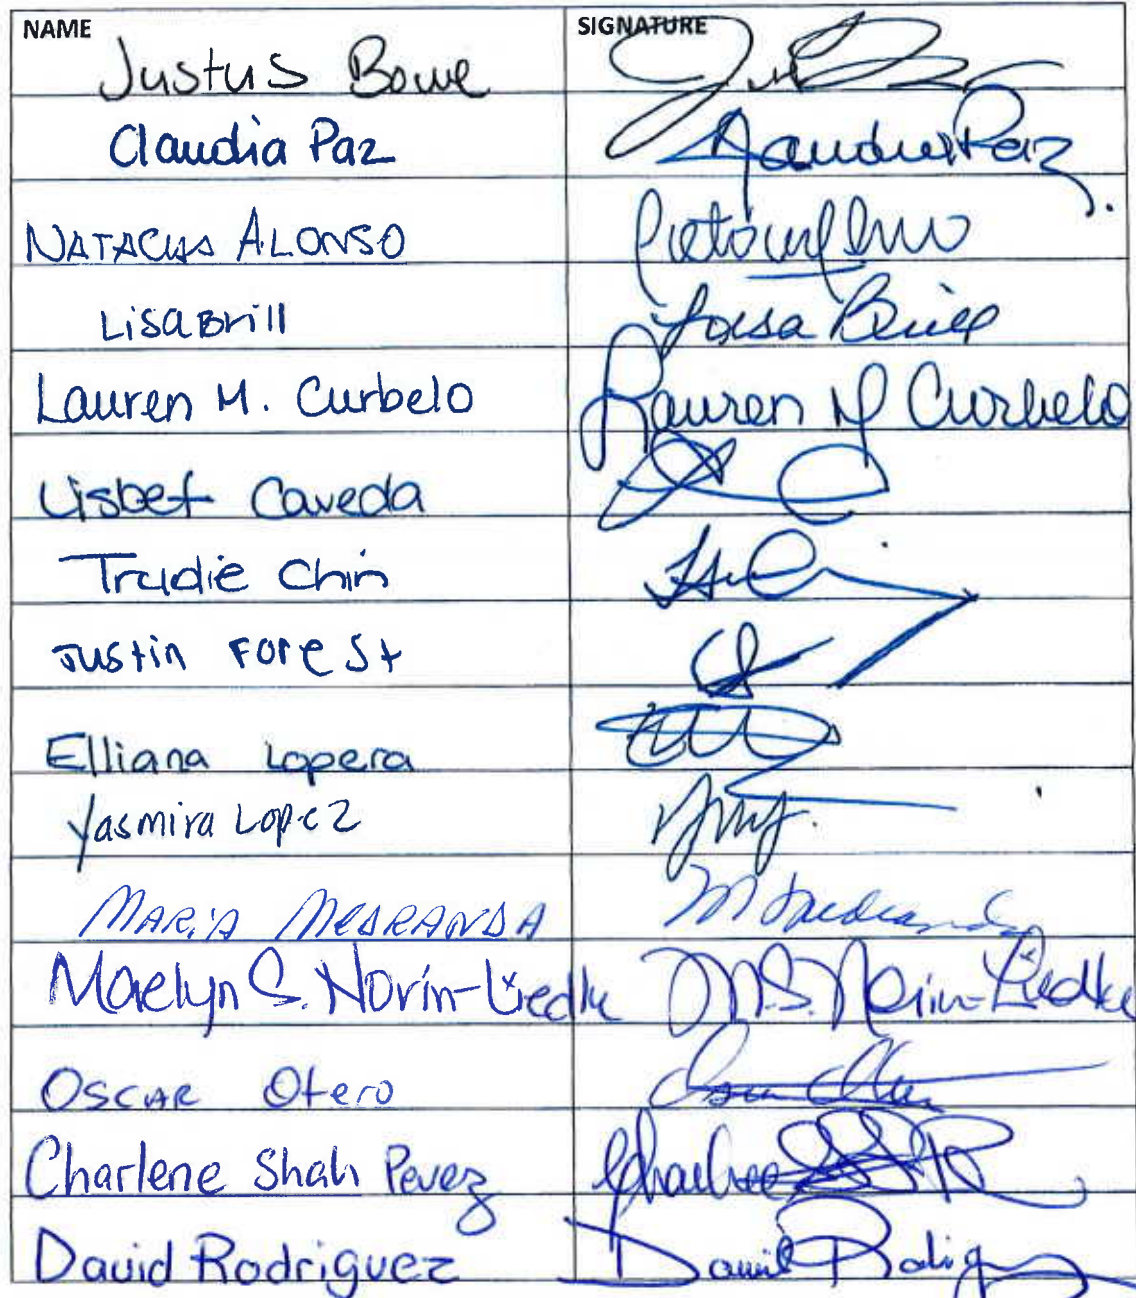 NAME SIGNATURE
Justus Bowe
Claudia Paz Claudia Paz
NATACHA ALONSO
Lisa Brill Lisa Brill
Lauren M. Curbelo Lauren M Curbelo
Lisbet Caveda
Trudie Chin
Justin Forest
Elliana Lopera
Yasmira Lopez
MARIA MEDRANDA
Maelyn S. Norin-Liedke M.S. Norin-Liedke
OSCAR Otero
Charlene Shah Perez Charlene
David Rodriguez David Rodriguez